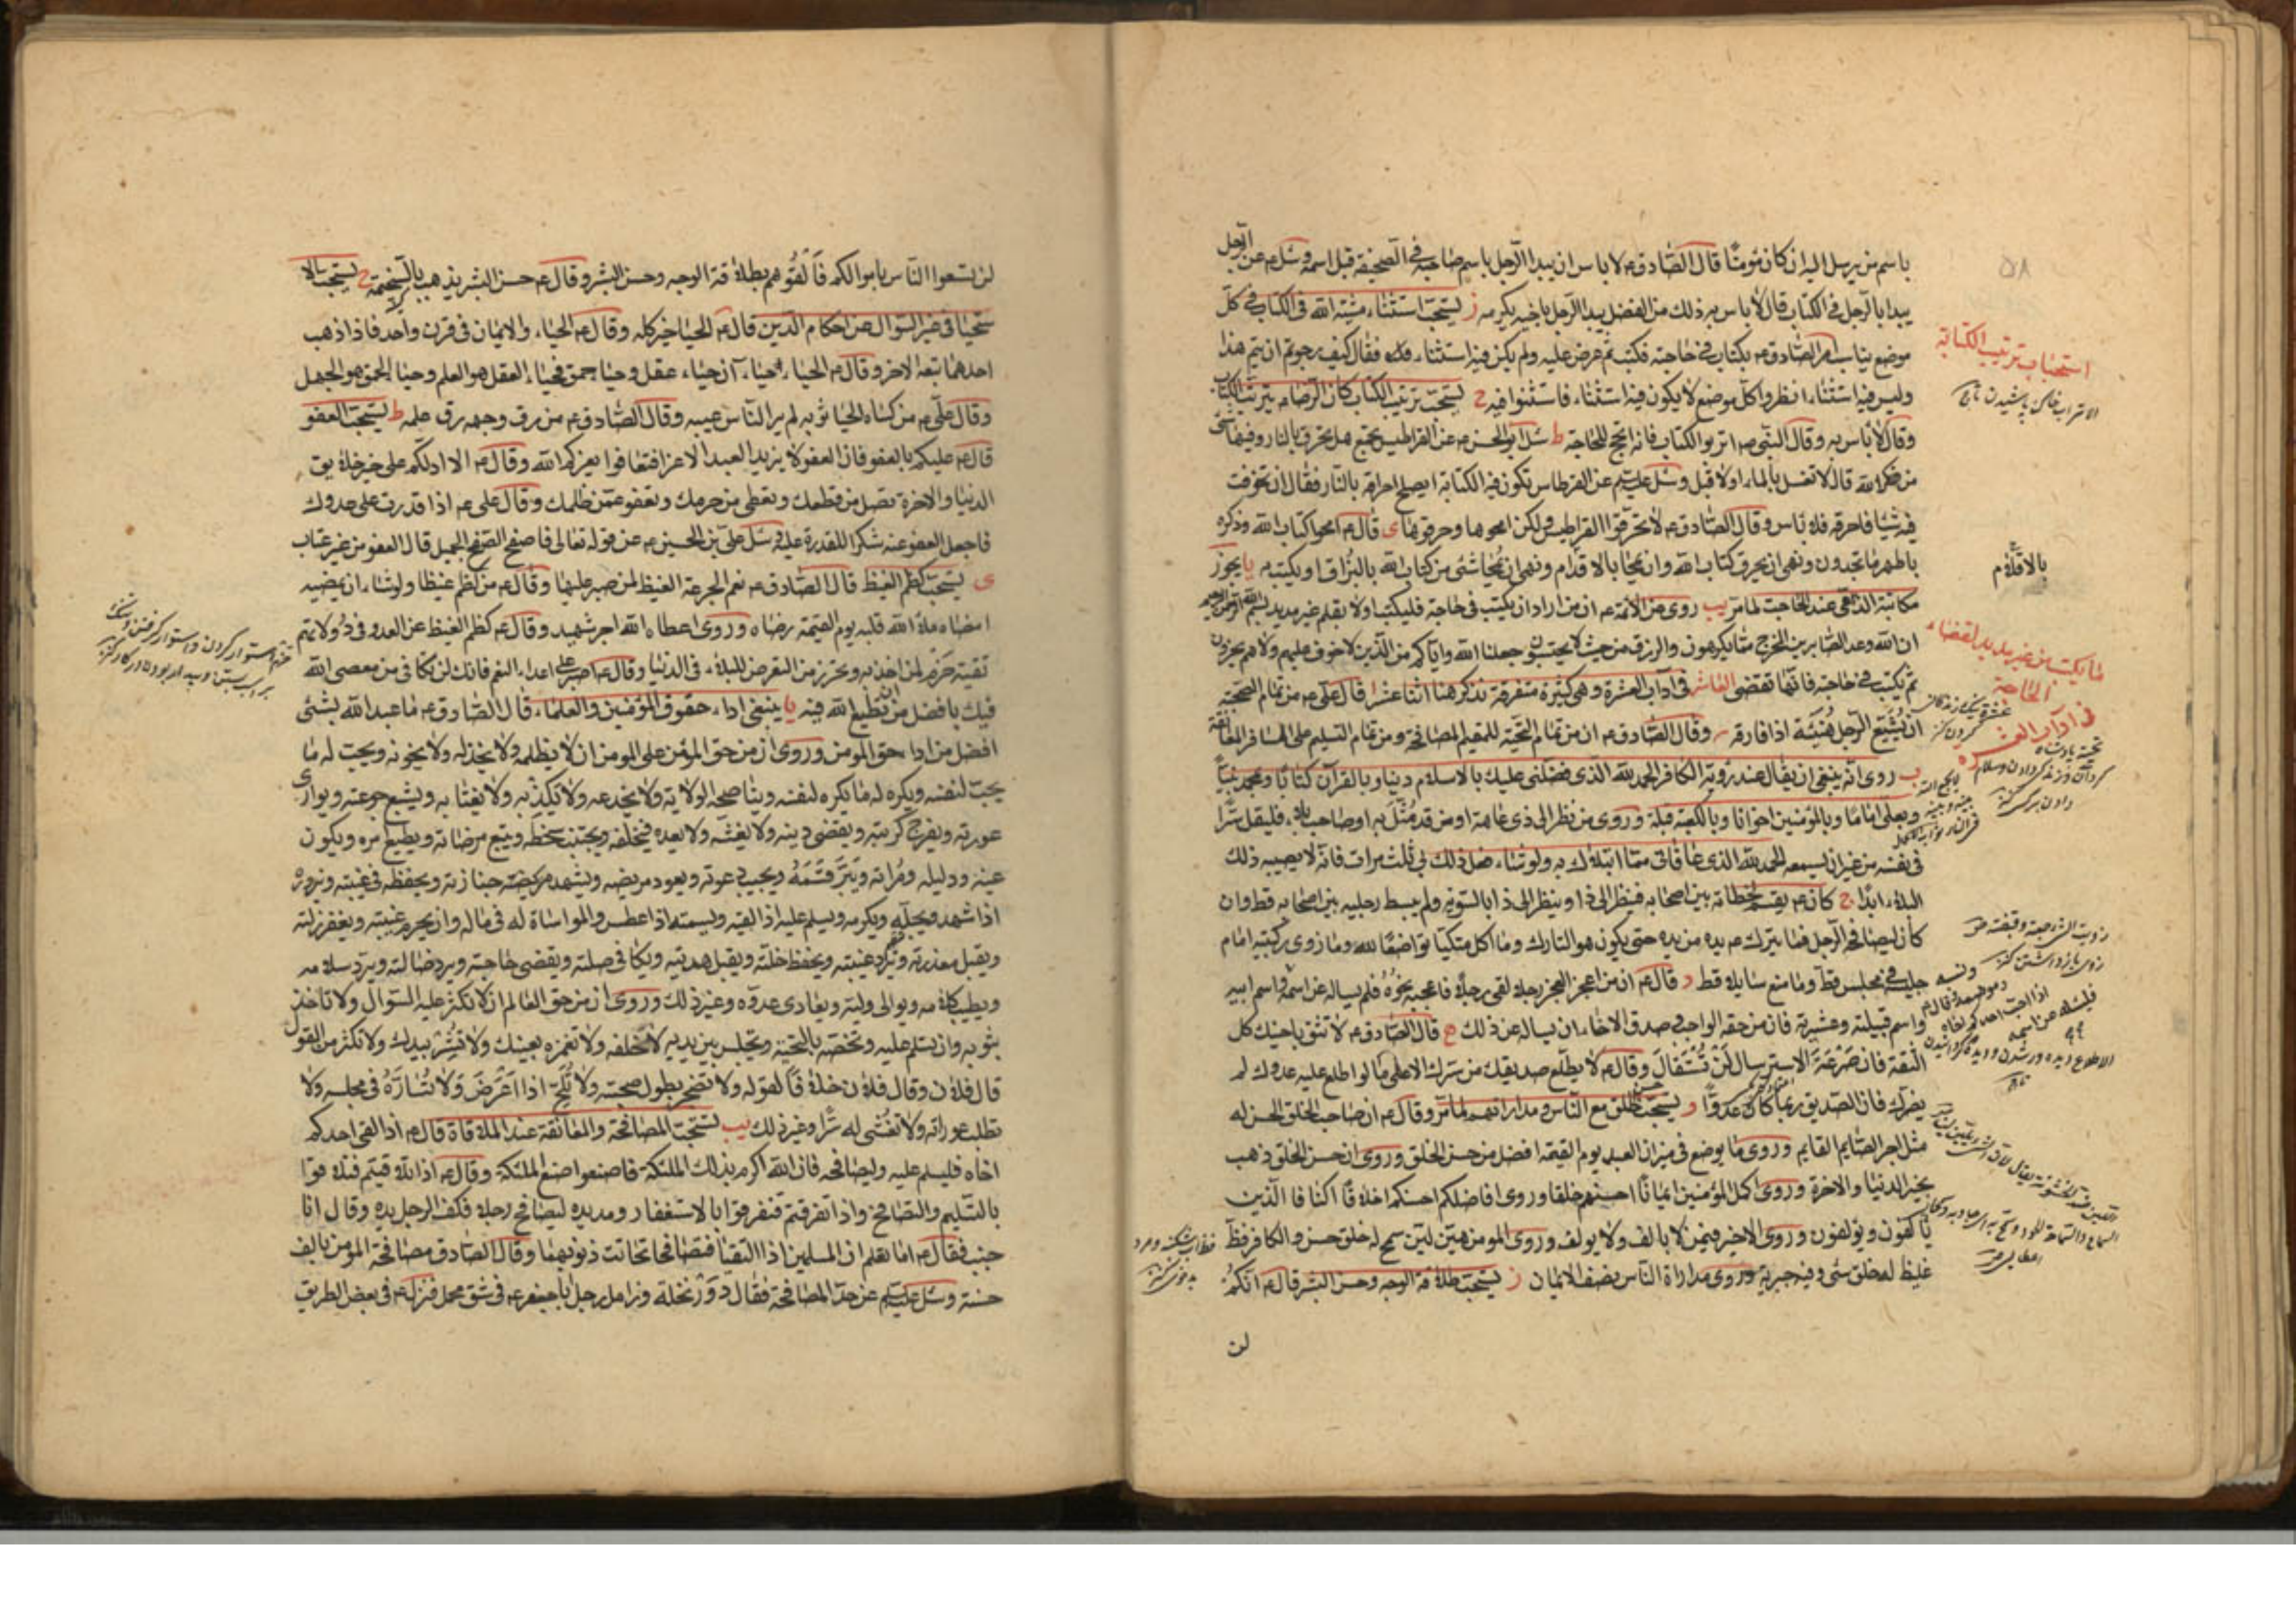 باسم من يرسل اليه ان كان مؤمنًا قال الصّادق ع لا باس ان يبدا الرّجل باسم صاحبه في الصّحيفة قبل اسمه وسئل ع عن الرّجل
يبدا بالرجل في الكتاب قال لا باس به ذلك من الفضل يبدا الرجل باخيه يكرمه ز يستحبّ استثناء مشيّة الله في الكتاب في كلّ
موضع يناسب امر الصّادق ع بكتاب في حاجة فكتب ثم عرض عليه ولم يكن فيه استثناء فقال كيف رجوتم ان يتم هذا
وليس فيه استثناء انظروا كلّ موضع لا يكون فيه استثناء فاستثنوا فيه ح يستحبّ تتريب الكتاب كان الرضا ع يترّب الكتاب
وقال لا باس به وقال النّبي ص اتربوا الكتاب فانه انجح للحاجة ط سئل ابو الحسن ع عن القراطيس يجتمع هل تحرق بالنار وفيها شئ
من ذكر الله قال لا تغسل بالماء اولا قبل وسئل عليه السلام عن القرطاس تكون فيه الكتابة ايصلح احراقه بالنّار فقال ان تخوفت
فيه شيئا فاحرقه فلا باس وقال الصّادق ع لا تحرقوا القراطيس ولكن امحوها وحرقوها ى قال ع امحوا كتاب الله وذكره
باطهر ما تجدون ونهى ان يحرق كتاب الله وان يمحا بالاقدام ونهى ان يمحا شئ من كتاب الله بالبزاق او يكتب به يا يجوز
مكاتبة الذمّي عند الحاجت لما مر يب روى عن الائمة ع ان من اراد ان يكتب في حاجة فليكتب اولا بقلم غير مديد بسم الله الرحمن الرحيم
ان الله وعد الصّابرين المخرج ممّا يكرهون والرزق من حيث لا يحتسبون جعلنا الله واياكم من الّذين لا خوف عليهم ولا هم يحزنون
ثم يكتب في حاجته فانّها تقضى العاشر في آداب العشرة وهي كثيرة متفرقة نذكر هنا اثنا عشر ا قال علي ع من تمام الصّحبة
ان يُشيّع الرّجل هُنيئة اذا فارقه وقال الصّادق ع ان من تمام التّحية للمقيم المصافحة ومن تمام التسليم على المسافر المعانقة
ب روى انه ينبغى ان يقال عند رؤية الكافر الحمد لله الذى فضلني عليك بالاسلام دينا وبالقرآن كتابًا وبمحمد نبيًّا
وبعليّ امامًا وبالمؤمنين اخوانا وبالكعبة قبلة وروى من نظر الى ذى عاهة او من قد مُثّلَ به او صاحب بلاء فليقل سرًّا
في نفسه من غير ان يسمعه الحمد لله الذى عافانى ممّا ابتلاك به ولو شاء فعل ذلك بي ثلث مرات فانه لا يصيبه ذلك
البلاء ابدًا ج كان ع يقسم لحظاته بين اصحابه فينظر الى ذا وينظر الى ذا بالسّوية ولم يبسط رجليه بين اصحابه قط وان
كان ليصافح الرّجل فما يترك ع يده من يده حتى يكون هو التارك وما اكل متكيًا تواضعًا لله وما زوى ركبتيه امام
جليسه في مجلس قطّ وما منع سايلا قط د قال ع ان من اعجز العجز رجلا لقى رجلا فاعجبه نحوهُ فلم يساله عن اسمه واسم ابيه
واسم قبيلته وعشيرته فان من حقه الواجب وصدق الاخاء ان يساله عن ذلك ه قال الصّادق ع لا تثق باخيك كل
الثّقة فان صَرْعَةَ الاسترسال لَنْ تُسْتَقالَ وقال ع لا يطلع صديقك من سرّك الا على ما لو اطلع عليه عدوك لم
يضرك فان الصّديق ربّما كان عدوًّا و يستحب حسن الخلق مع النّاس ومداراتهم لما مرّ وقال ع ان صاحب الخلق الحسن له
مثل اجر الصّايم القايم وروى ما يوضع في ميزان العبد يوم القيمة افضل من حسن الخلق وروى ان حسن الخلق ذهب
بخير الدنيا والاخرة وروى اكمل المؤمنين ايمانًا احسنهم خلقا وروى افاضلكم احسنكم اخلاقًا اكنافا الّذين
يألفون ويؤلفون وروى لا خير فيمن لا يالف ولا يولف وروى المومن هيّن ليّن سمح له خلق حسن والكافر فظّ
غليظ له خلق سئ وفيه جبرية وروى مداراة النّاس نصف الايمان ز يستحبّ طلاقة الوجه وحسن البشر قال ع انّكم
لن
٥٨
استحباب تتريب الكتابة
بالاقلام
ما يكتب من غير مديد لقضاء
الحاجة
في آداب العشرة
لن تسعوا النّاس باموالكم فَالْقُوهُم بطلاقة الوجه وحسن البشر وقال ع حسن البشر يذهب بالسّخيمة ح يستحبّ الا
ستحيا في غير السّوال عن احكام الدّين قال ع الحيا خير كله وقال ع الحياء والايمان في قرن واحد فاذا ذهب
احدهما تبعه الاخر وقال ع الحياء حياءان حياء عقل وحياء حمق فحياء العقل هو العلم وحياء الحمق هو الجهل
وقال علي ع من كساه الحيا ثوبه لم ير النّاس عيبه وقال الصّادق ع من رق وجهه رق علمه ط يستحبّ العفو
قال ع عليكم بالعفو فان العفو لا يزيد العبد الا عزا فتعافوا يعزكم الله وقال ع الا ادلّكم على خير خلايق
الدنيا والاخرة تصل من قطعك وتعطي من حرمك وتعفو عمّن ظلمك وقال علي ع اذا قدرت على عدوك
فاجعل العفو عنه شكرا للقدرة عليه وسئل علي بن الحسين ع عن قوله تعالى فاصفح الصّفح الجميل قال العفو من غير عتاب
ى يستحبّ كظم الغيظ قال الصّادق ع نعم الجرعة الغيظ لمن صبر عليها وقال ع من كظم غيظا ولو شاء ان يمضيه
امضاه ملأ الله قلبه يوم القيمة رضاه وروى اعطاه الله اجر شهيد وقال ع كظم الغيظ عن العدو في دُولاتهم
تقية حَزم لمن اخذ به وتحرز من التعرض للبلاء في الدّنيا وقال ع اصبر على اعداء النعم فانك لن تكافى من عصى الله
فيك بافضل من ان تطيع الله فيه يا ينبغى اداء حقوق المؤمنين والعلماء قال الصّادق ع ما عبد الله بشئ
افضل من اداء حق المومن وروى ان من حق المؤمن على المومن ان لا يظلمه ولا يخذله ولا يخونه ويحب له ما
يحبّ لنفسه ويكره له ما يكره لنفسه ويناصحه الولاية ولا يخدعه ولا يكذبه ولا يغتابه ويشبع جوعته ويوارى
عورته ويفرج كربته ويقضى دينه ولا يغشّه ولا يعده فيخلفه ويجتنب سخطه ويتبع مرضاته ويطيع امره ويكون
عينه ودليله ومرآته ويَبَرَّ قَسَمَهُ ويجيب دعوته ويعود مريضه ويشهد جنازته ويحفظه في غيبته ويزوره
اذا شهد ويجلّه ويكرمه ويسلم عليه اذا لقيه ويسمته اذا عطس والمواساة له في ماله وان يحرم غيبته ويغفر زلته
ويقبل معذرته ويرد غيبته ويحفظ خلّته ويقبل هديته ويكافى صلته ويقضى حاجته ويرد ضالته ويرد سلامه
ويطيب كلامه ويوالى وليه ويعادى عدوه وغير ذلك وروى ان من حق العالم ان لا تكثر عليه السّوال ولا تاخذ
بثوبه وان تسلم عليه وتخصّه بالتحية وتجلس بين يديه لا خلفه ولا تغمزه بعينك ولا تُشر بيدك ولا تكثر من القول
قال فلان وقال فلان خلافًا لقوله ولا تضجر بطول صحبته ولا تُلحّ اذا اَعْرَضَ وَلا تُسارّهُ في مجلسه ولا
تطلب عوراته ولا تفشى له سرًّا وغير ذلك يب تستحبّ المصافحة والمعانقة عند الملاقاة قال ع اذا لقى احدكم
اخاه فليسلم عليه وليصافحه فان الله اكرم بذلك الملئكة فاصنعوا صنع الملئكة وقال ع اذا تلاقيتم فتلاقوا
بالتّسليم والتصافح واذا تفرقتم فتفرقوا بالاستغفار ومد يده ليصافح رجلا فكف الرجل يده وقال انا
جنب فقال ع اما تعلم ان المسلمين اذا التقيا فتصافحا تحاتت ذنوبهما وقال الصّادق مصافحة المومن بالف
حسنة وسئل عليه السلام عن حدّ المصافحة فقال دَوْرُ نخلة وزامل رجل اباجعفر ع في شق محمل فنزل ع في بعض الطريق